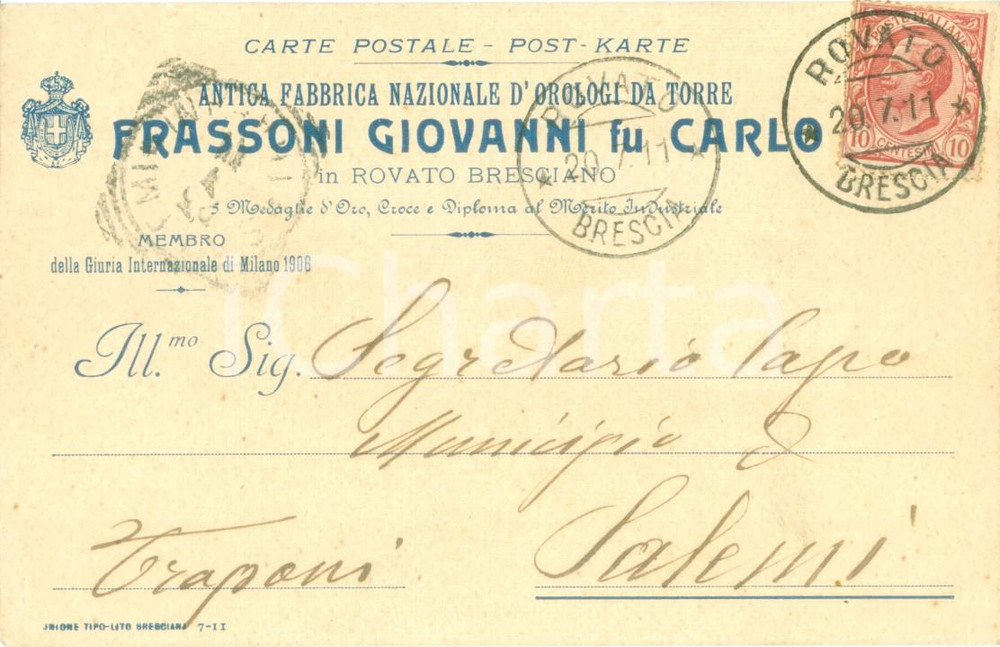 CARTE POSTALE - POST-KARTE
ANTICA FABBRICA NAZIONALE D'OROLOGI DA TORRE
FRASSONI GIOVANNI fu CARLO
in ROVATO BRESCIANO
5 Medaglie d'Oro, Croce e Diploma al Merito Industriale
MEMBRO
della Giuria Internazionale di Milano 1906
POSTE ITALIANE
10 CENTESIMI 10
ROVATO
20.7.11
BRESCIA
ROVATO
20.7.11
BRESCIA
iCharta
Ill.mo Sig. Segretario Capo
Municipio di
Salemi
Trapani
UNIONE TIPO-LITO BRESCIANA 7-11